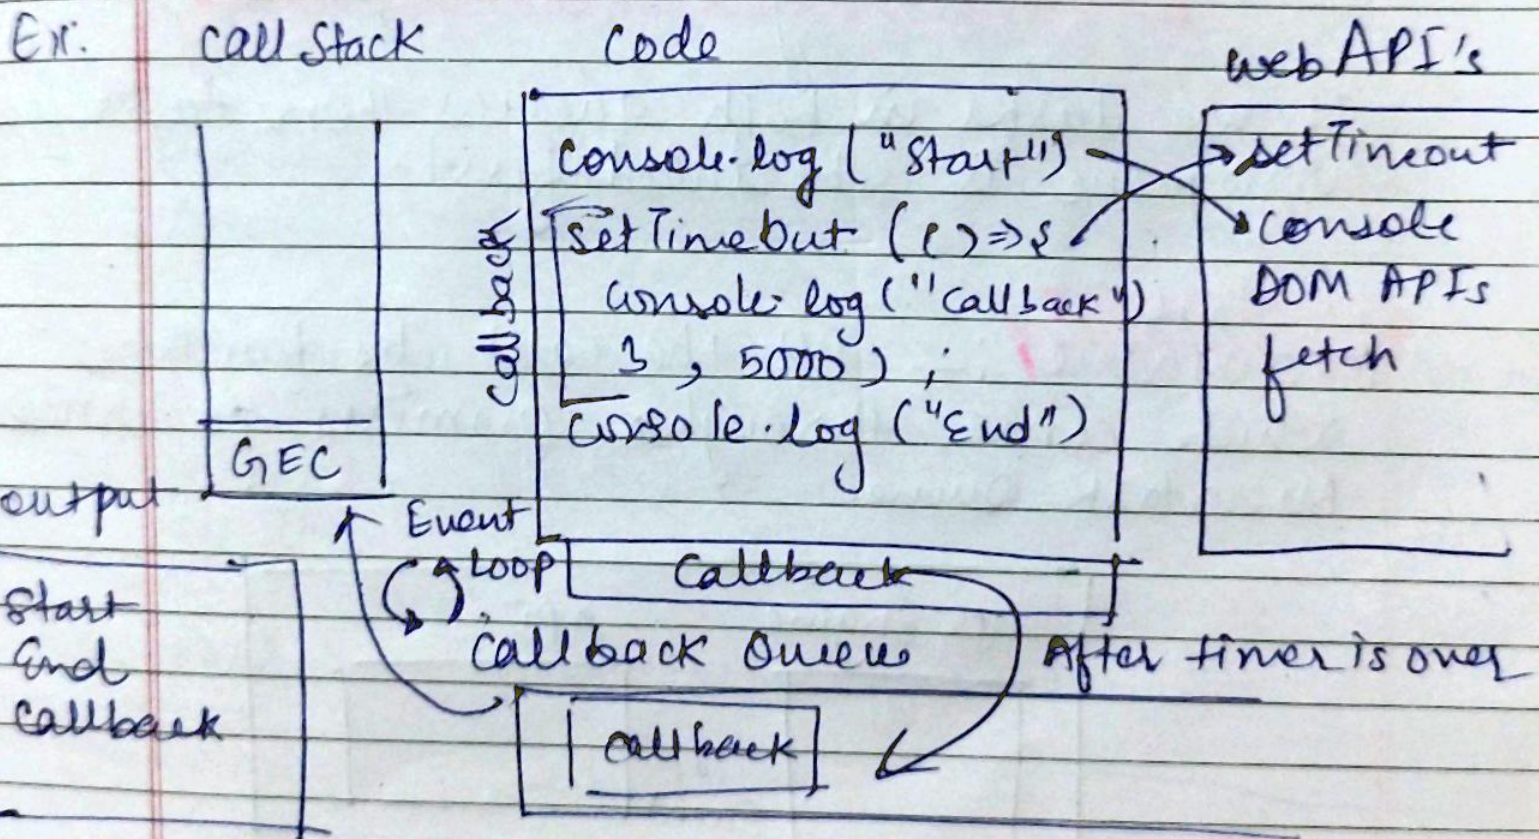 Ex.
Call Stack
Code
web API's
console.log ("Start")
setTimeout (( ) => {
console.log ("callback")
} , 5000 ) ;
console.log ("End")
callback
setTimeout
console
DOM APIs
fetch
GEC
output
Start
End
Callback
Event
Loop
Callback
Callback Queue
After timer is over
callback